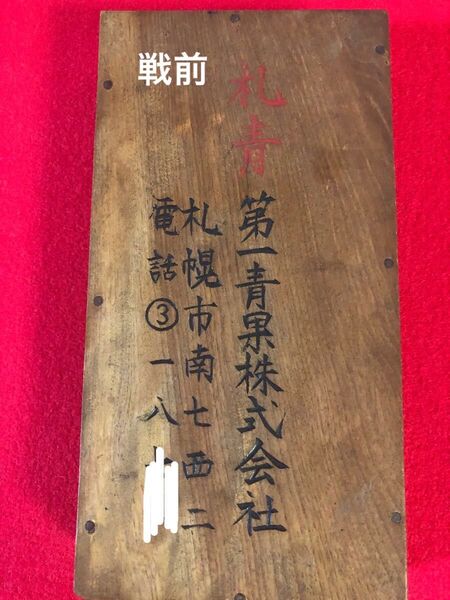 戦前
札青
第一青果株式会社
札幌市南七西二
電話③一八